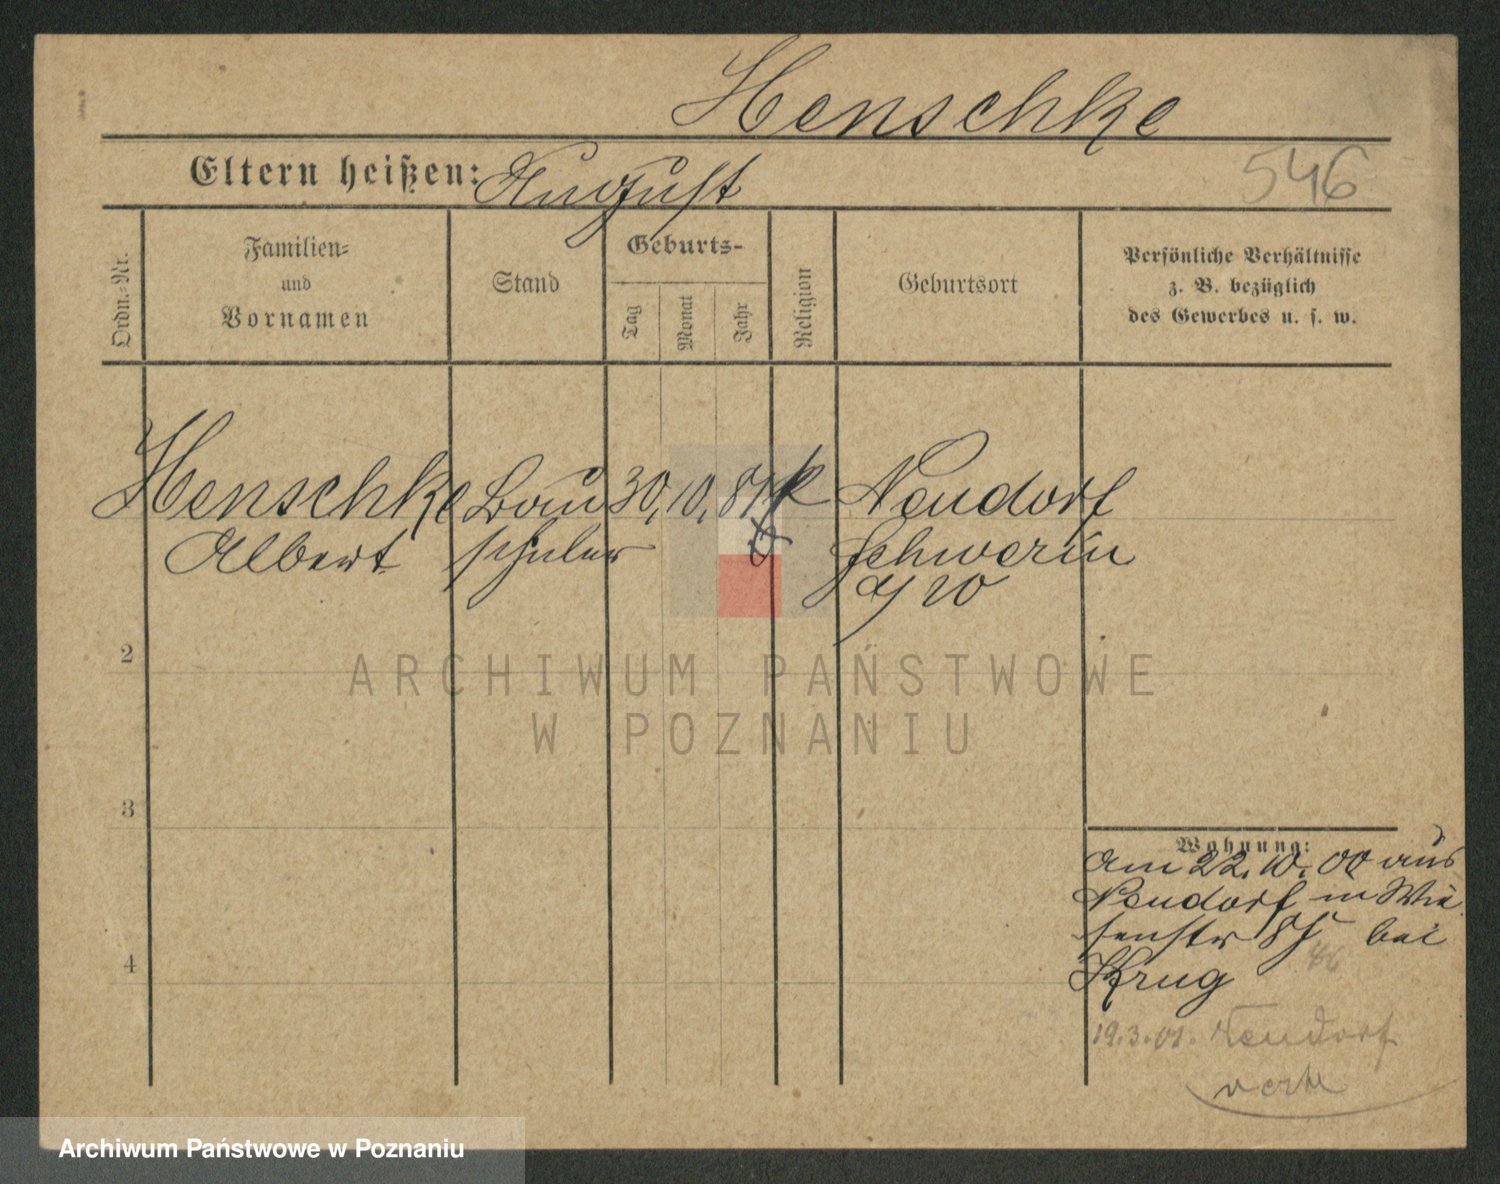 Henschke
Eltern heißen: August
546
Ordn.-Nr.
Familien-
und
Vornamen
Stand
Geburts-
Tag
Monat
Jahr
Religion
Geburtsort
Persönliche Verhältnisse
z. B. bezüglich
des Gewerbes u. s. w.
Henschke Bau 30. 10. 81 k Neudorf
Albert schuler Schwerin
a/W
2
3
4
Wohnung:
am 22. 10. 00 aus
Neudorf in Wie
senstr 8 bei
Krug
46
19.3.01. Neudorf
verte
ARCHIWUM PAŃSTWOWE
W POZNANIU
Archiwum Państwowe w Poznaniu